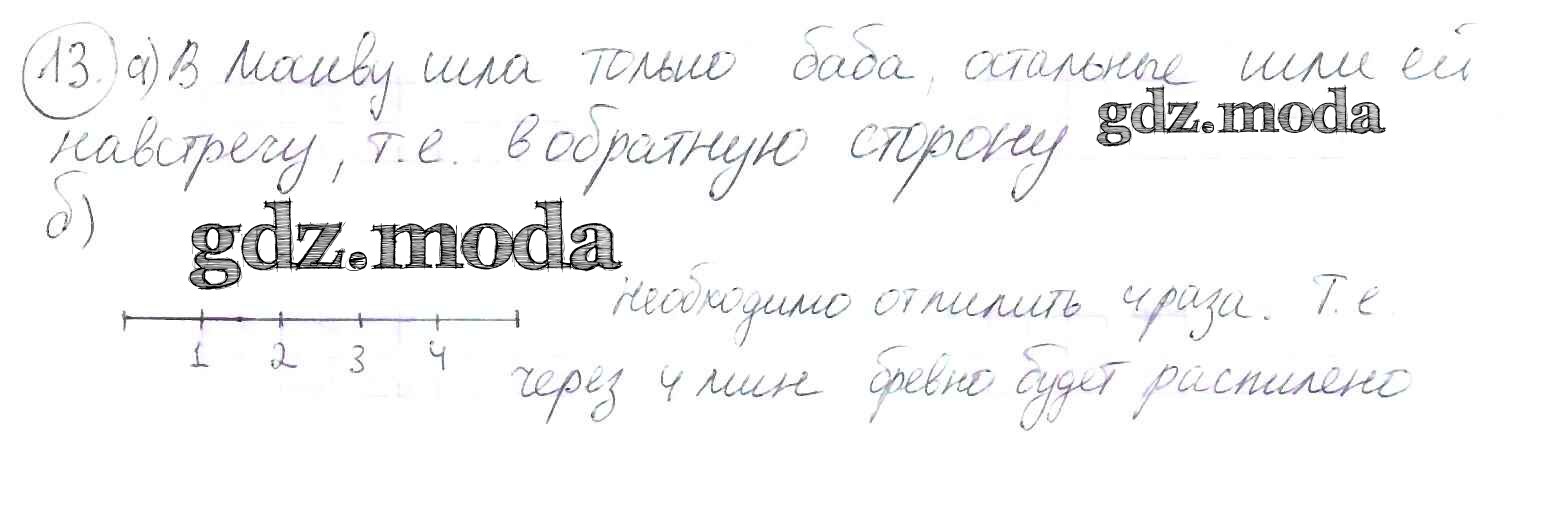 13. а) В Москву шла только баба, остальные шли ей
навстречу, т.е. в обратную сторону gdz.moda
б)
gdz.moda
необходимо отпилить 4 раза. Т.е.
1 2 3 4
через 4 мин бревно будет распилено